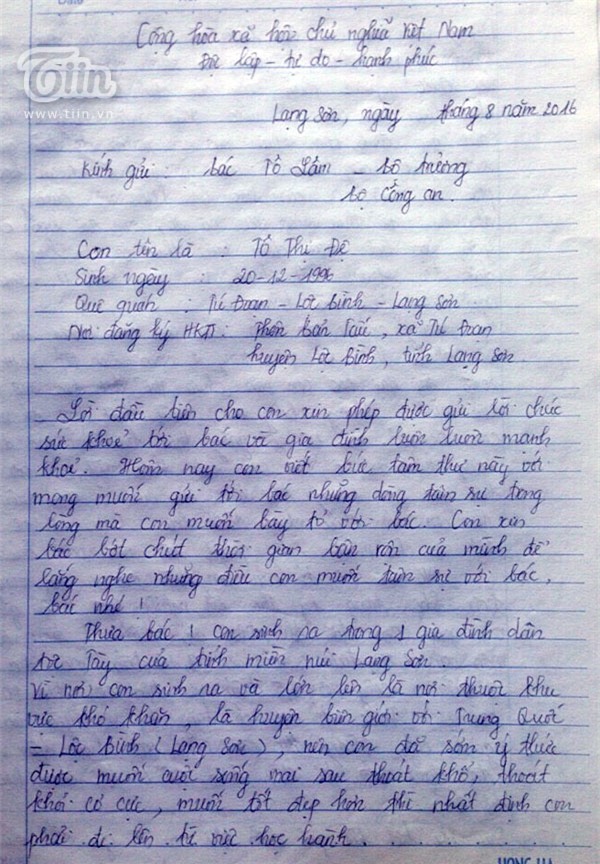 Date
Tiin
www.tiin.vn
Cộng hòa xã hội chủ nghĩa Việt Nam
Độc lập - tự do - hạnh phúc
Lạng Sơn, ngày tháng 8 năm 2016
Kính gửi : bác Tô Lâm - bộ trưởng
bộ Công an.
Con tên là : Tô Thị Đệ
Sinh ngày : 20-12-1996
Quê quán : Tú Đoạn - Lộc Bình - Lạng Sơn
Nơi đăng ký HKTT: thôn bản Tấu, xã Tú Đoạn
huyện Lộc Bình, tỉnh Lạng Sơn.
Lời đầu tiên cho con xin phép được gửi lời chúc
sức khoẻ tới bác và gia đình luôn luôn mạnh
khoẻ. Hôm nay con viết bức tâm thư này với
mong muốn gửi tới bác những dòng tâm sự trong
lòng mà con muốn bày tỏ với bác. Con xin
bác bớt chút thời gian bận rộn của mình để
lắng nghe những điều con muốn tâm sự với bác,
bác nhé !
Thưa bác ! con sinh ra trong 1 gia đình dân
tộc Tày của tỉnh miền núi Lạng Sơn.
Vì nơi con sinh ra và lớn lên là nơi thuộc khu
vực khó khăn, là huyện biên giới với Trung Quốc
- Lộc Bình (Lạng Sơn), nên con đã sớm ý thức
được muốn cuộc sống mai sau thoát khổ, thoát
khỏi cơ cực, muốn tốt đẹp hơn thì nhất định con
phải đi lên từ việc học hành
HONG HA